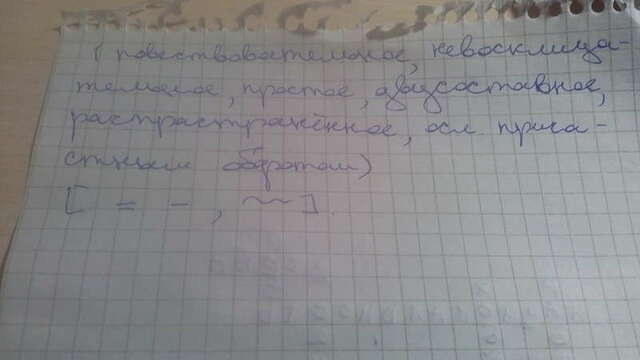 ( повествовательное, невосклица-
тельное, простое, двусоставное,
распрастранённое, осл. прича-
стным оборотом)
[ = – , ~~ ].